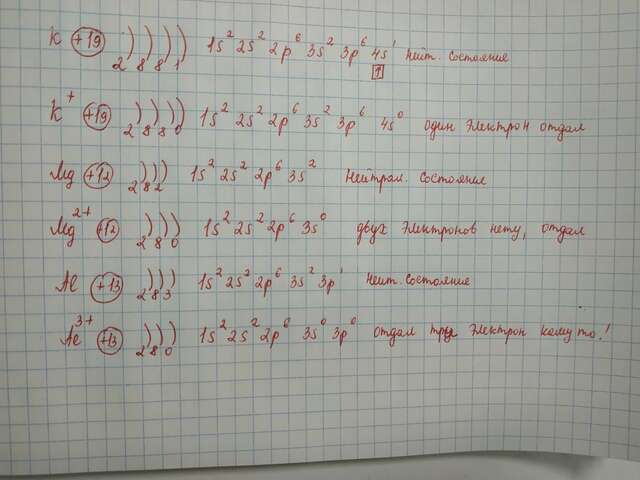 K +19 ) ) ) ) 2 8 8 1 1s² 2s² 2p⁶ 3s² 3p⁶ 4s¹ 1 нейт. состояние
K⁺ +19 ) ) ) ) 2 8 8 0 1s² 2s² 2p⁶ 3s² 3p⁶ 4s⁰ один электрон отдал
Mg +12 ) ) ) 2 8 2 1s² 2s² 2p⁶ 3s² Нейтрал. состояние
Mg²⁺ +12 ) ) ) 2 8 0 1s² 2s² 2p⁶ 3s⁰ двух электронов нету, отдал
Al +13 ) ) ) 2 8 3 1s² 2s² 2p⁶ 3s² 3p¹ нейт. состояние
Al³⁺ +13 ) ) ) 2 8 0 1s² 2s² 2p⁶ 3s⁰ 3p⁰ отдал электрон кому то!